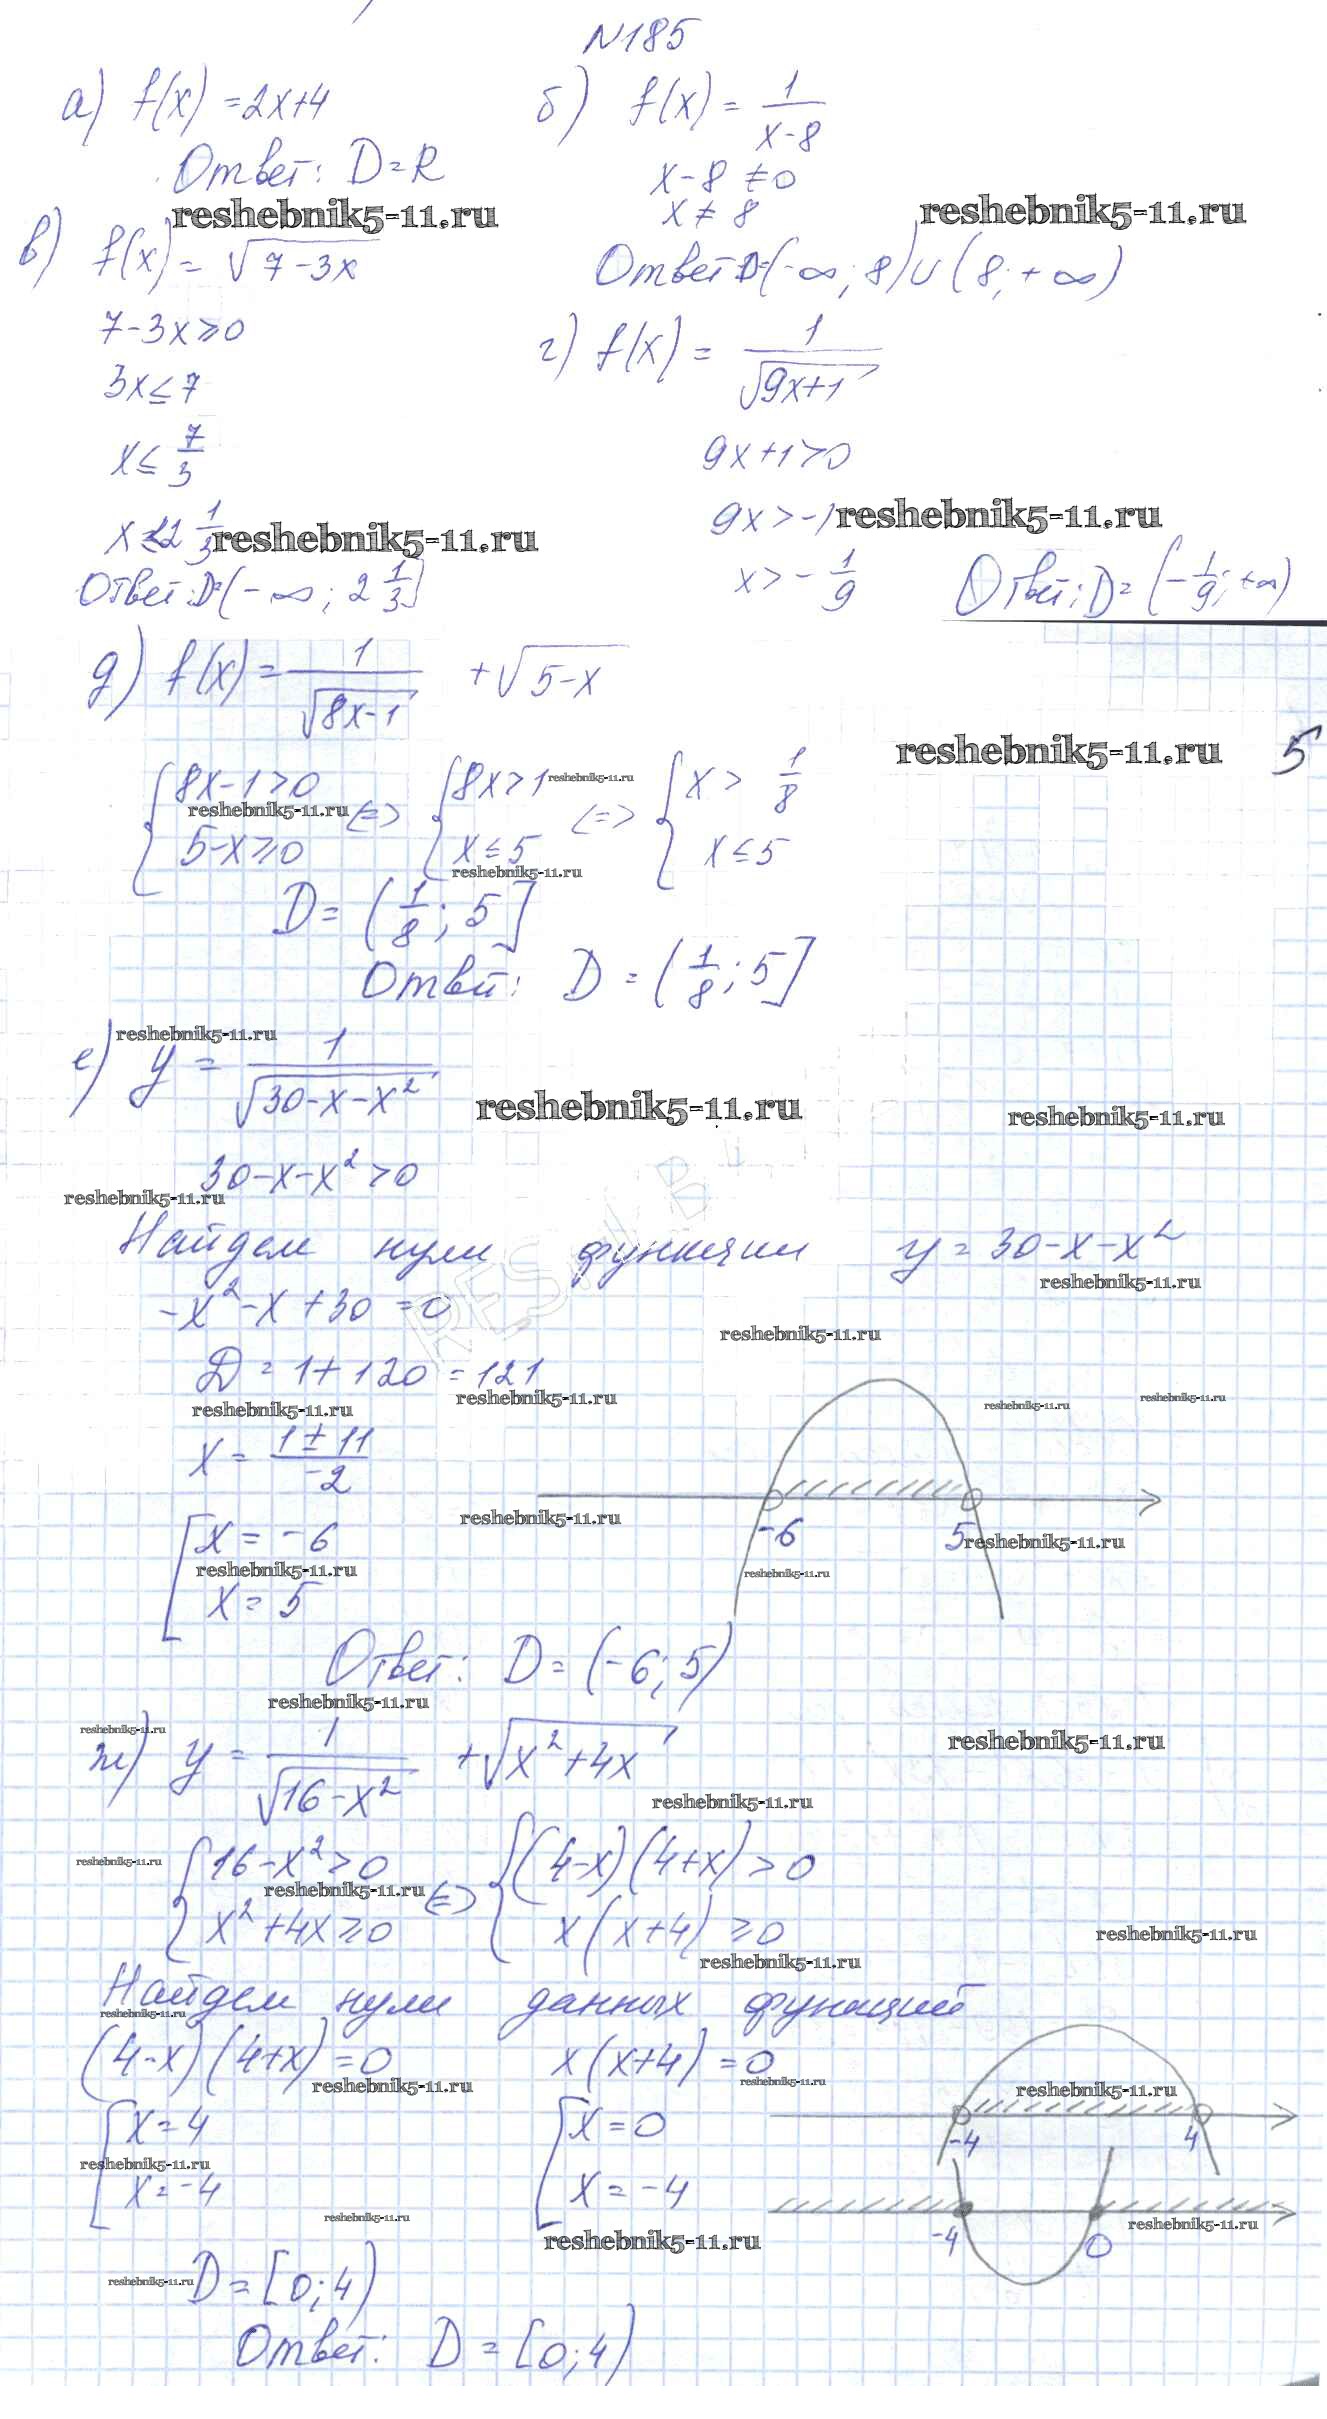 N185
а) f(x) = 2x+4
Ответ: D=R
б) f(x) = 1/(x-8)
x-8 ≠ 0
x ≠ 8
reshebnik5-11.ru
reshebnik5-11.ru
Ответ: D=(-∞; 8)∪(8; +∞)
в) f(x) = √(7-3x)
7-3x ≥ 0
3x ≤ 7
x ≤ 7/3
x ≤ 2 1/3
reshebnik5-11.ru
Ответ: D=(-∞; 2 1/3]
г) f(x) = 1/√(9x+1)
9x+1>0
9x>-1
reshebnik5-11.ru
x > -1/9
Ответ: D=(-1/9; +∞)
д) f(x) = 1/√(8x-1) + √(5-x)
reshebnik5-11.ru 5
{8x-1>0 {8x>1 {x > 1/8
reshebnik5-11.ru
reshebnik5-11.ru
<=> <=>
5-x≥0 x≤5 x≤5
reshebnik5-11.ru
D = (1/8; 5]
Ответ: D = (1/8; 5]
reshebnik5-11.ru
е) y = 1/√(30-x-x²)
reshebnik5-11.ru
reshebnik5-11.ru
30-x-x²>0
reshebnik5-11.ru
Найдем нули функции y = 30-x-x²
reshebnik5-11.ru
-x²-x+30=0
reshebnik5-11.ru
D = 1+120 = 121
reshebnik5-11.ru
reshebnik5-11.ru
reshebnik5-11.ru
reshebnik5-11.ru
x = (1±11)/-2
reshebnik5-11.ru
[x = -6
-6 5
reshebnik5-11.ru
reshebnik5-11.ru
reshebnik5-11.ru
x = 5
Ответ: D = (-6; 5)
reshebnik5-11.ru
reshebnik5-11.ru
ж) y = 1/√(16-x²) + √(x²+4x)
reshebnik5-11.ru
reshebnik5-11.ru
{16-x²>0 {(4-x)(4+x)>0
reshebnik5-11.ru
reshebnik5-11.ru
<=>
x²+4x≥0 x(x+4)≥0
reshebnik5-11.ru
reshebnik5-11.ru
Найдем нули данных функций
reshebnik5-11.ru
(4-x)(4+x)=0 x(x+4)=0
reshebnik5-11.ru
reshebnik5-11.ru
reshebnik5-11.ru
[x=4 [x=0
-4 4
reshebnik5-11.ru
x=-4 x=-4
reshebnik5-11.ru
reshebnik5-11.ru
reshebnik5-11.ru
-4 0
D=[0;4)
reshebnik5-11.ru
Ответ: D=[0;4)